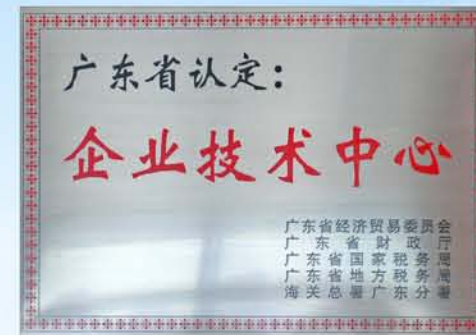 广东省认定：
企业技术中心
广东省经济贸易委员会
广东省财政厅
广东省国家税务局
广东省地方税务局
海关总署广东分署